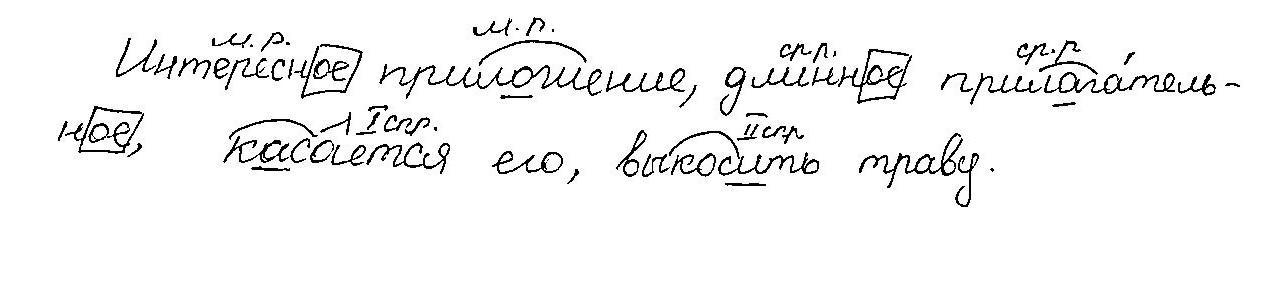 м.р. м.р. ср.р. ср.р
Интересное приложение, длинное прилага́тель-
I спр. II спр
ное, касается его, выкосить траву.